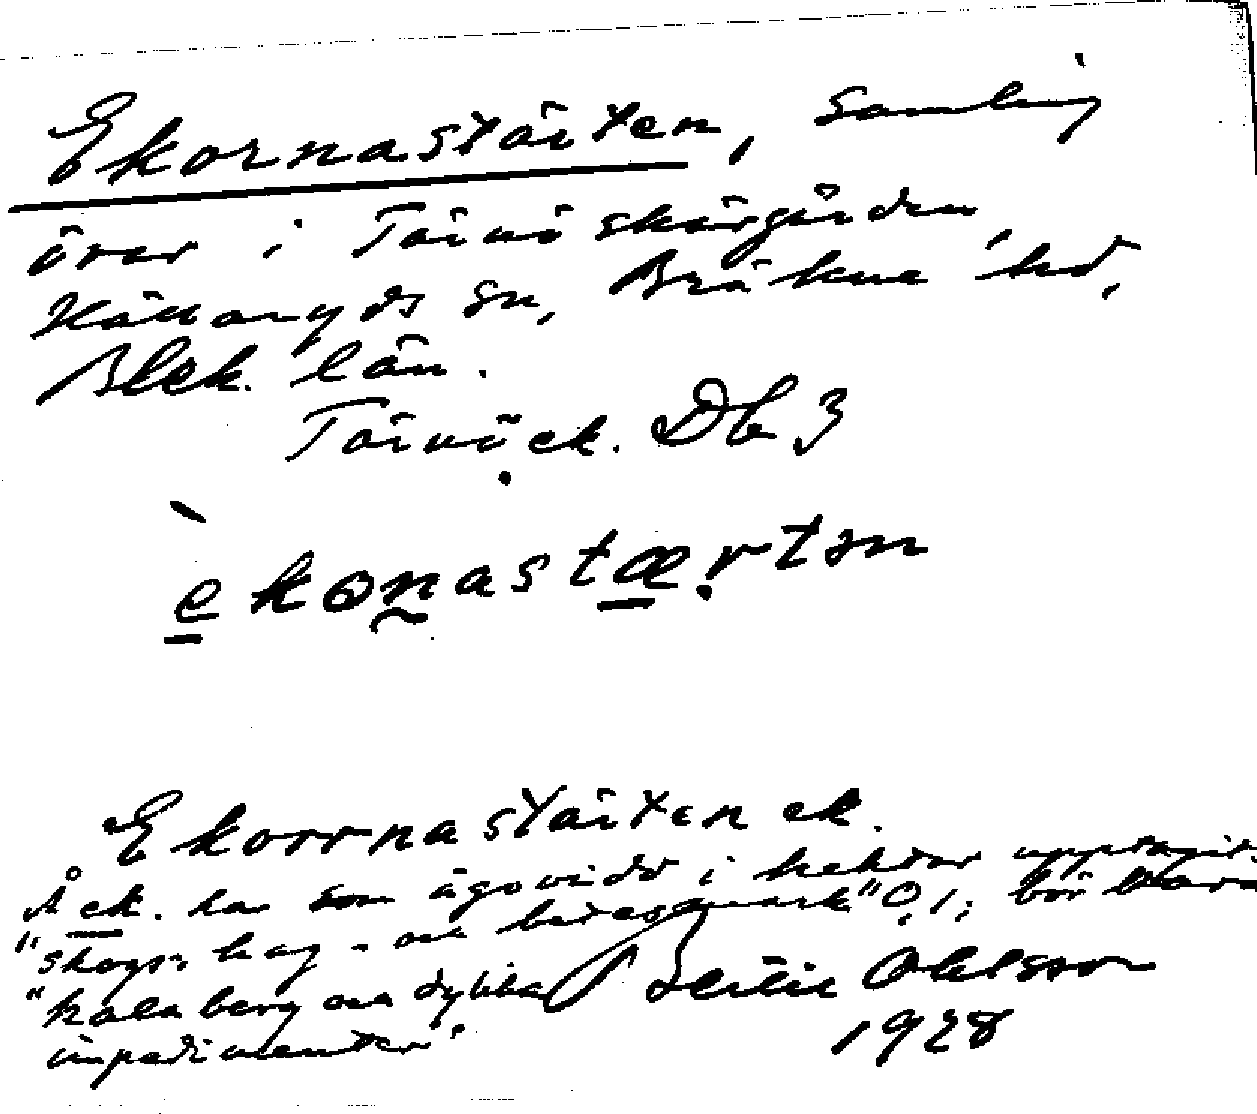 Ekornastärten, samling
öar i Tärnö skärgården,
Hällaryds sn, Bräkne hd,
Blek. län.
Tärnö ek. Db 3
èkonastærtən
Ekorrnastärten ek.
Å ek. har som ägovidd i hektar upptagits
"skogs, hag- och betesmark" 0,1; bör vara
"kala berg och dylika
impedimenter"
Bertil Ohlsson
1928